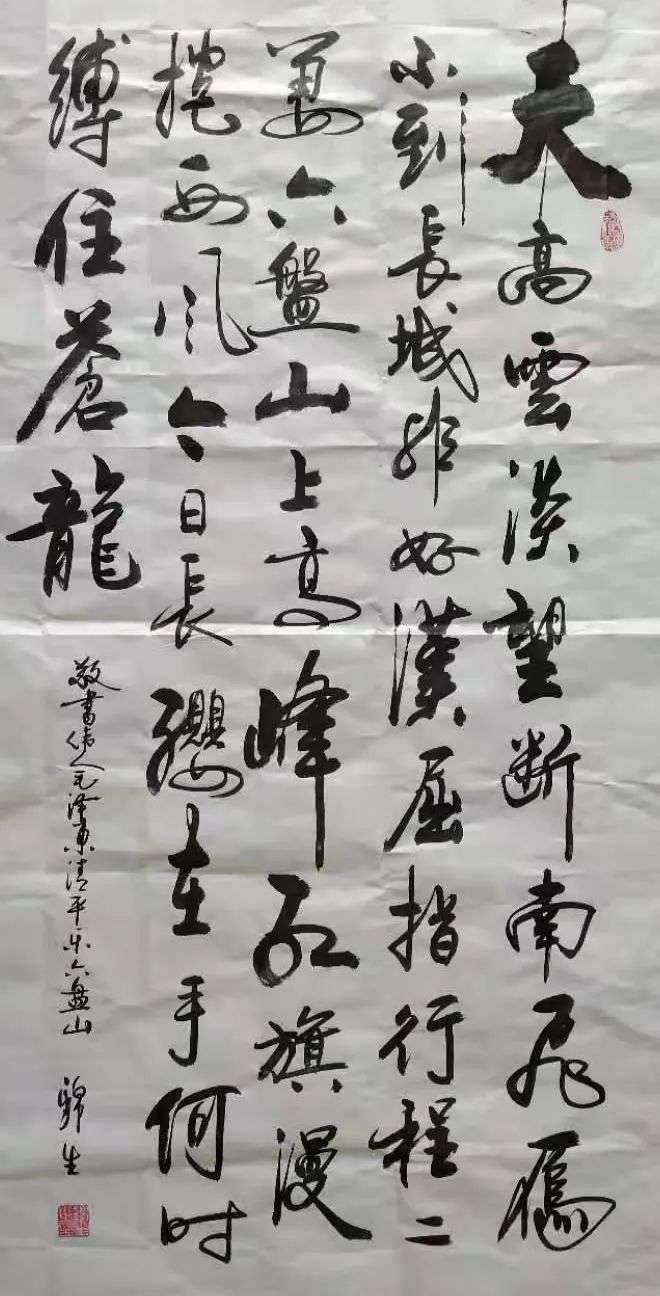 天高雲淡望断南飛鴈
不到長城非好漢屈指行程二
萬六盤山上高峰红旗漫
捲西风今日長纓在手何时
縛住蒼龍
敬書伟人毛泽东清平乐六盘山 錦生